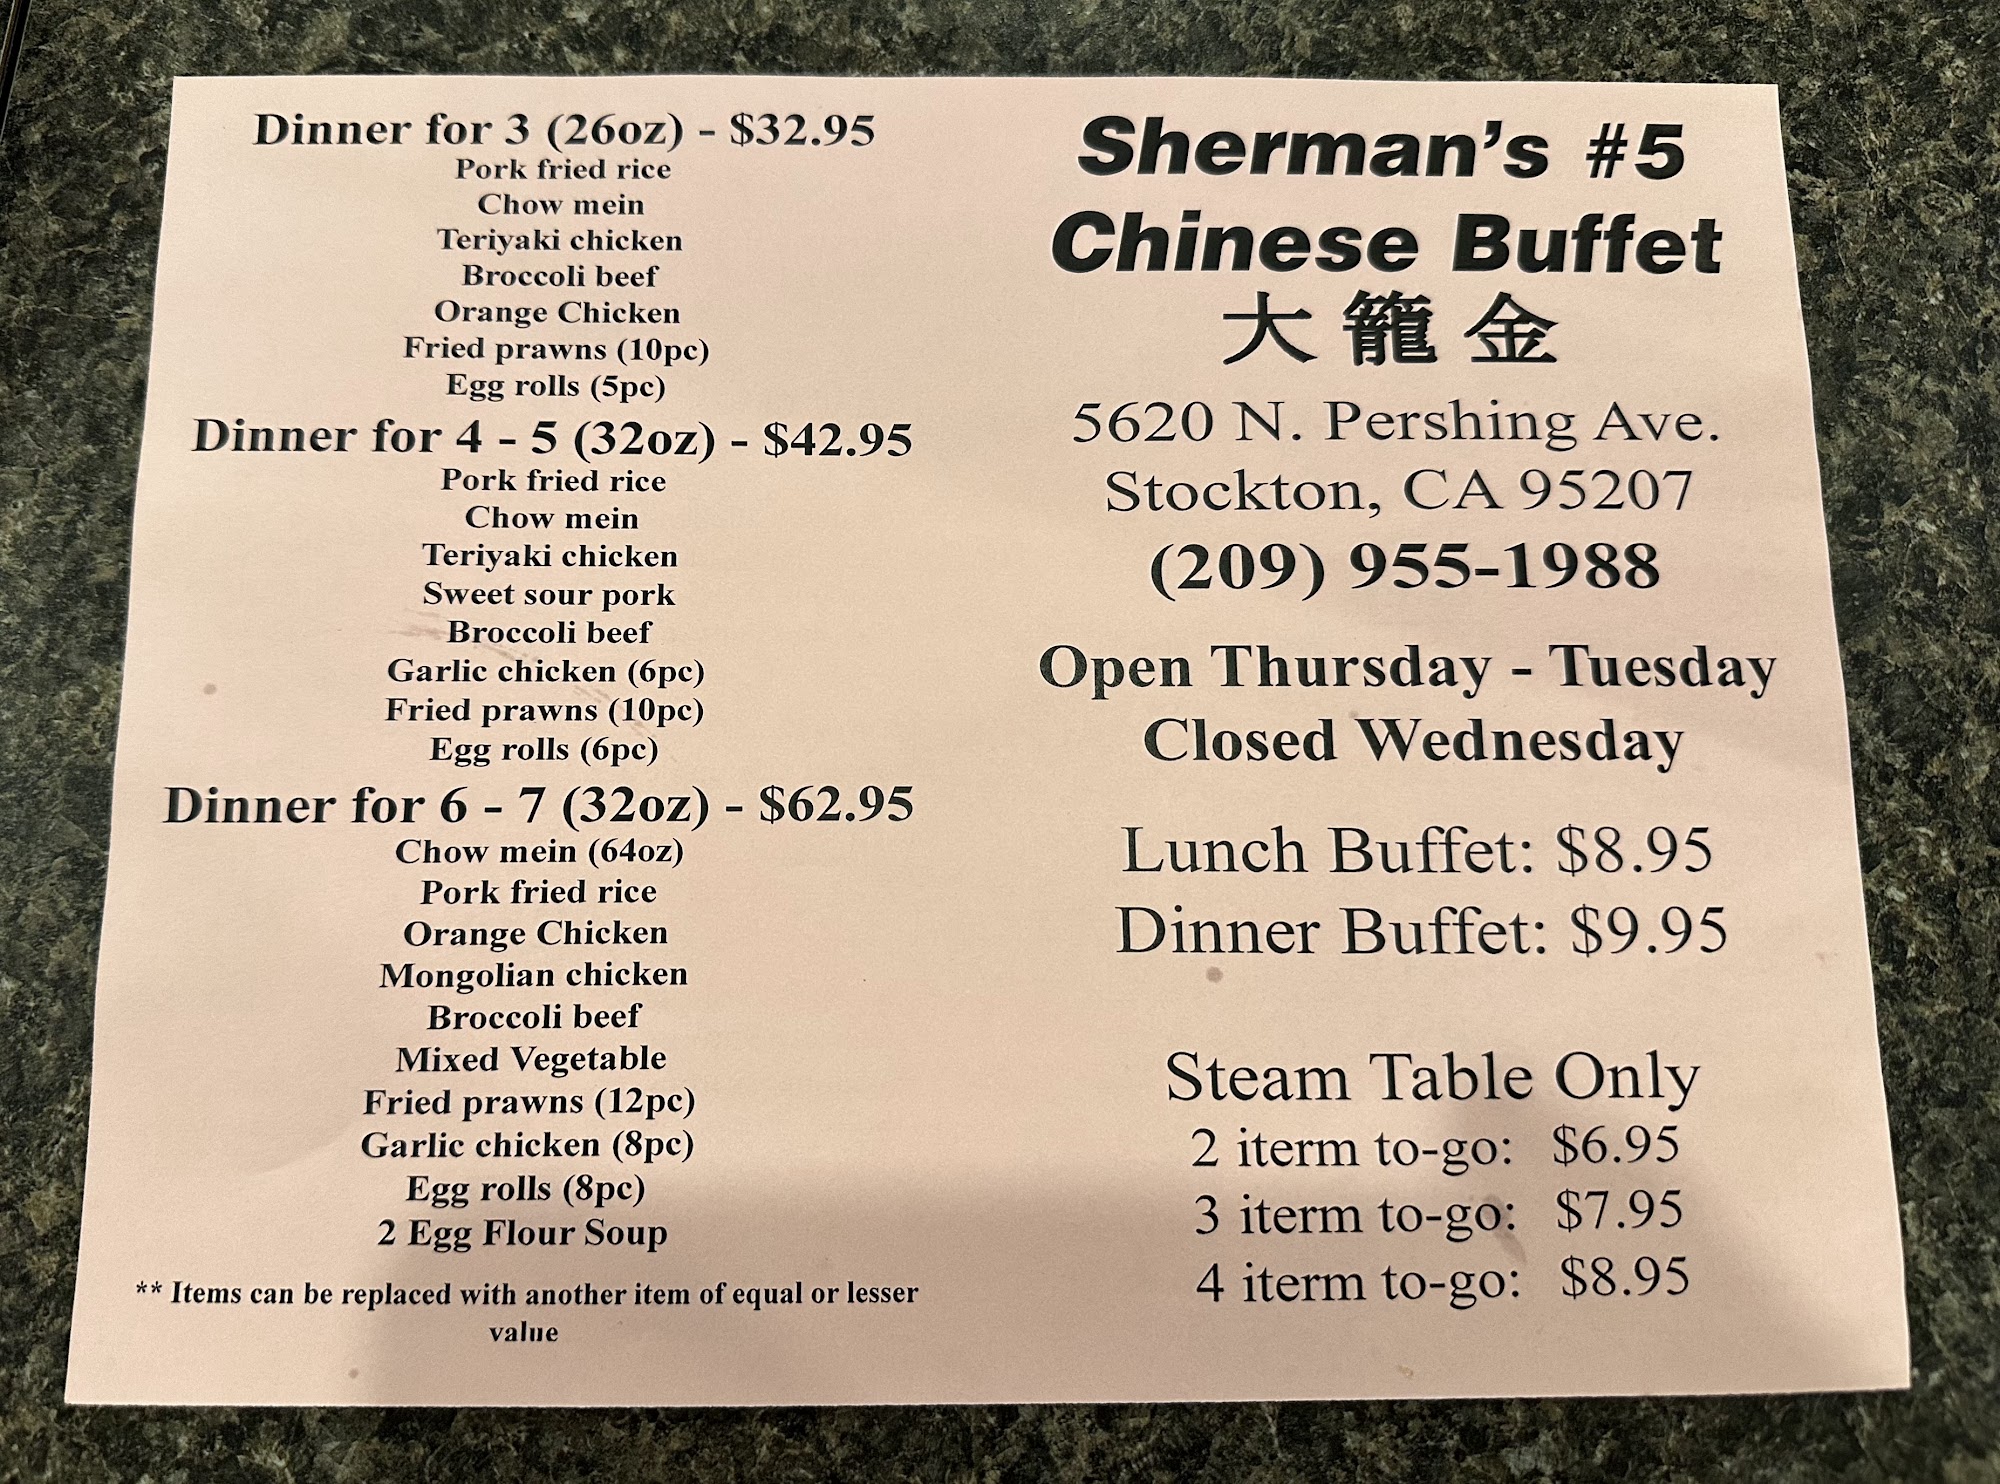 Dinner for 3 (26oz) - $32.95
Pork fried rice
Chow mein
Teriyaki chicken
Broccoli beef
Orange Chicken
Fried prawns (10pc)
Egg rolls (5pc)
Dinner for 4 - 5 (32oz) - $42.95
Pork fried rice
Chow mein
Teriyaki chicken
Sweet sour pork
Broccoli beef
Garlic chicken (6pc)
Fried prawns (10pc)
Egg rolls (6pc)
Dinner for 6 - 7 (32oz) - $62.95
Chow mein (64oz)
Pork fried rice
Orange Chicken
Mongolian chicken
Broccoli beef
Mixed Vegetable
Fried prawns (12pc)
Garlic chicken (8pc)
Egg rolls (8pc)
2 Egg Flour Soup
** Items can be replaced with another item of equal or lesser
value
Sherman's #5
Chinese Buffet
大籠金
5620 N. Pershing Ave.
Stockton, CA 95207
(209) 955-1988
Open Thursday - Tuesday
Closed Wednesday
Lunch Buffet: $8.95
Dinner Buffet: $9.95
Steam Table Only
2 iterm to-go: $6.95
3 iterm to-go: $7.95
4 iterm to-go: $8.95